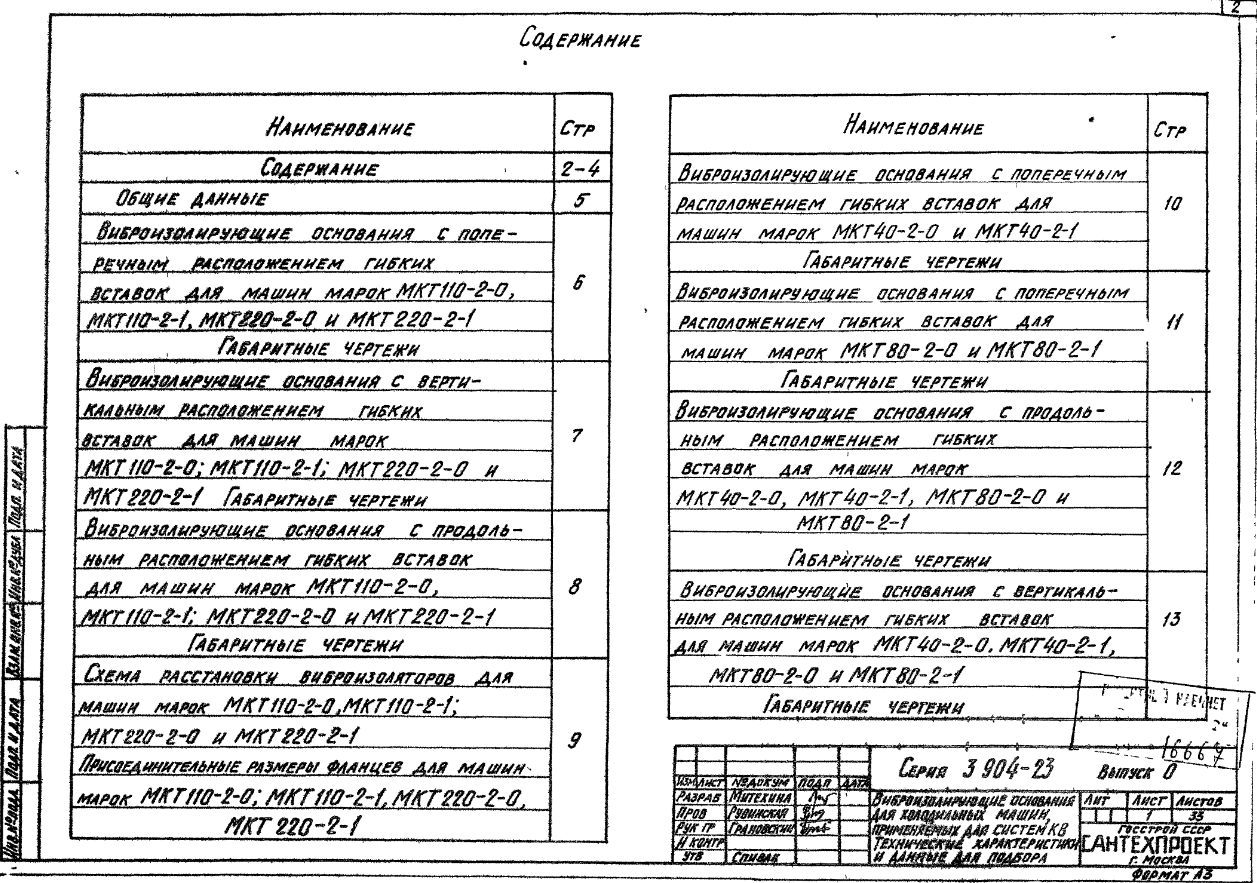 2
Содержание
Наименование Стр
Содержание 2-4
Общие данные 5
Виброизолирующие основания с попе-
речным расположением гибких
вставок для машин марок МКТ110-2-0, 6
МКТ110-2-1, МКТ220-2-0 и МКТ220-2-1
Габаритные чертежи
Виброизолирующие основания с верти-
кальным расположением гибких
вставок для машин марок 7
МКТ110-2-0; МКТ110-2-1; МКТ220-2-0 и
МКТ220-2-1 Габаритные чертежи
Виброизолирующие основания с продоль-
ным расположением гибких вставок
для машин марок МКТ110-2-0, 8
МКТ110-2-1; МКТ220-2-0 и МКТ220-2-1
Габаритные чертежи
Схема расстановки виброизоляторов для
машин марок МКТ110-2-0, МКТ110-2-1;
МКТ220-2-0 и МКТ220-2-1 9
Присоединительные размеры фланцев для машин
марок МКТ110-2-0; МКТ110-2-1, МКТ220-2-0,
МКТ 220-2-1
Наименование Стр
Виброизолирующие основания с поперечным
расположением гибких вставок для 10
машин марок МКТ40-2-0 и МКТ40-2-1
Габаритные чертежи
Виброизолирующие основания с поперечным
расположением гибких вставок для 11
машин марок МКТ80-2-0 и МКТ80-2-1
Габаритные чертежи
Виброизолирующие основания с продоль-
ным расположением гибких
вставок для машин марок 12
МКТ40-2-0, МКТ40-2-1, МКТ80-2-0 и
МКТ80-2-1
Габаритные чертежи
Виброизолирующие основания с вертикаль-
ным расположением гибких вставок 13
для машин марок МКТ40-2-0, МКТ40-2-1,
МКТ80-2-0 и МКТ80-2-1
Габаритные чертежи
16667
Серия 3 904-23 Выпуск 0
Изм Лист № докум Подп Дата
Разраб Митехина
Пров Рувинская
Рук гр Грановский
Н контр
Утв Спивак
Виброизолирующие основания
для холодильных машин,
применяемых для систем КВ
Технические характеристики
и данные для подбора
Лит Лист Листов
1 33
Госстрой СССР
САНТЕХПРОЕКТ
г. Москва
Формат А3
Подп. и дата
Инв.№ дубл
Взам.инв.№
Подп. и дата
Инв.№ подл.